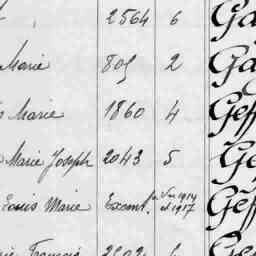 2564 6 Ga
Marie 805 2 Ga
Marie 1860 4 Geff
Marie Joseph 2043 5 Ge
Louis Marie Exempt. 1914 et 1917 Geff
François